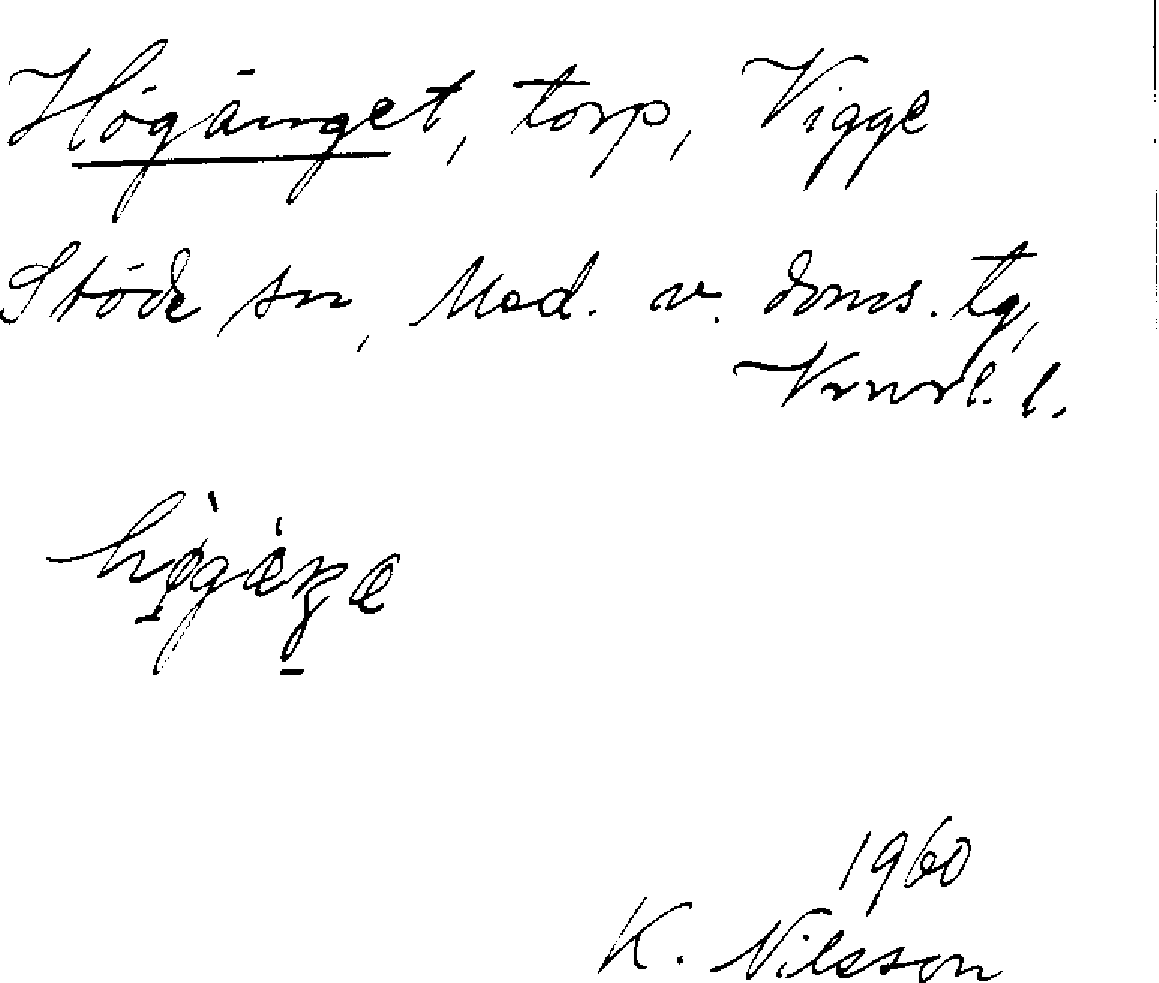 Högänget, torp, Vigge
Stöde sn, Med. v. doms. tg,
Vnrl. l.
1960
K. Nilsson